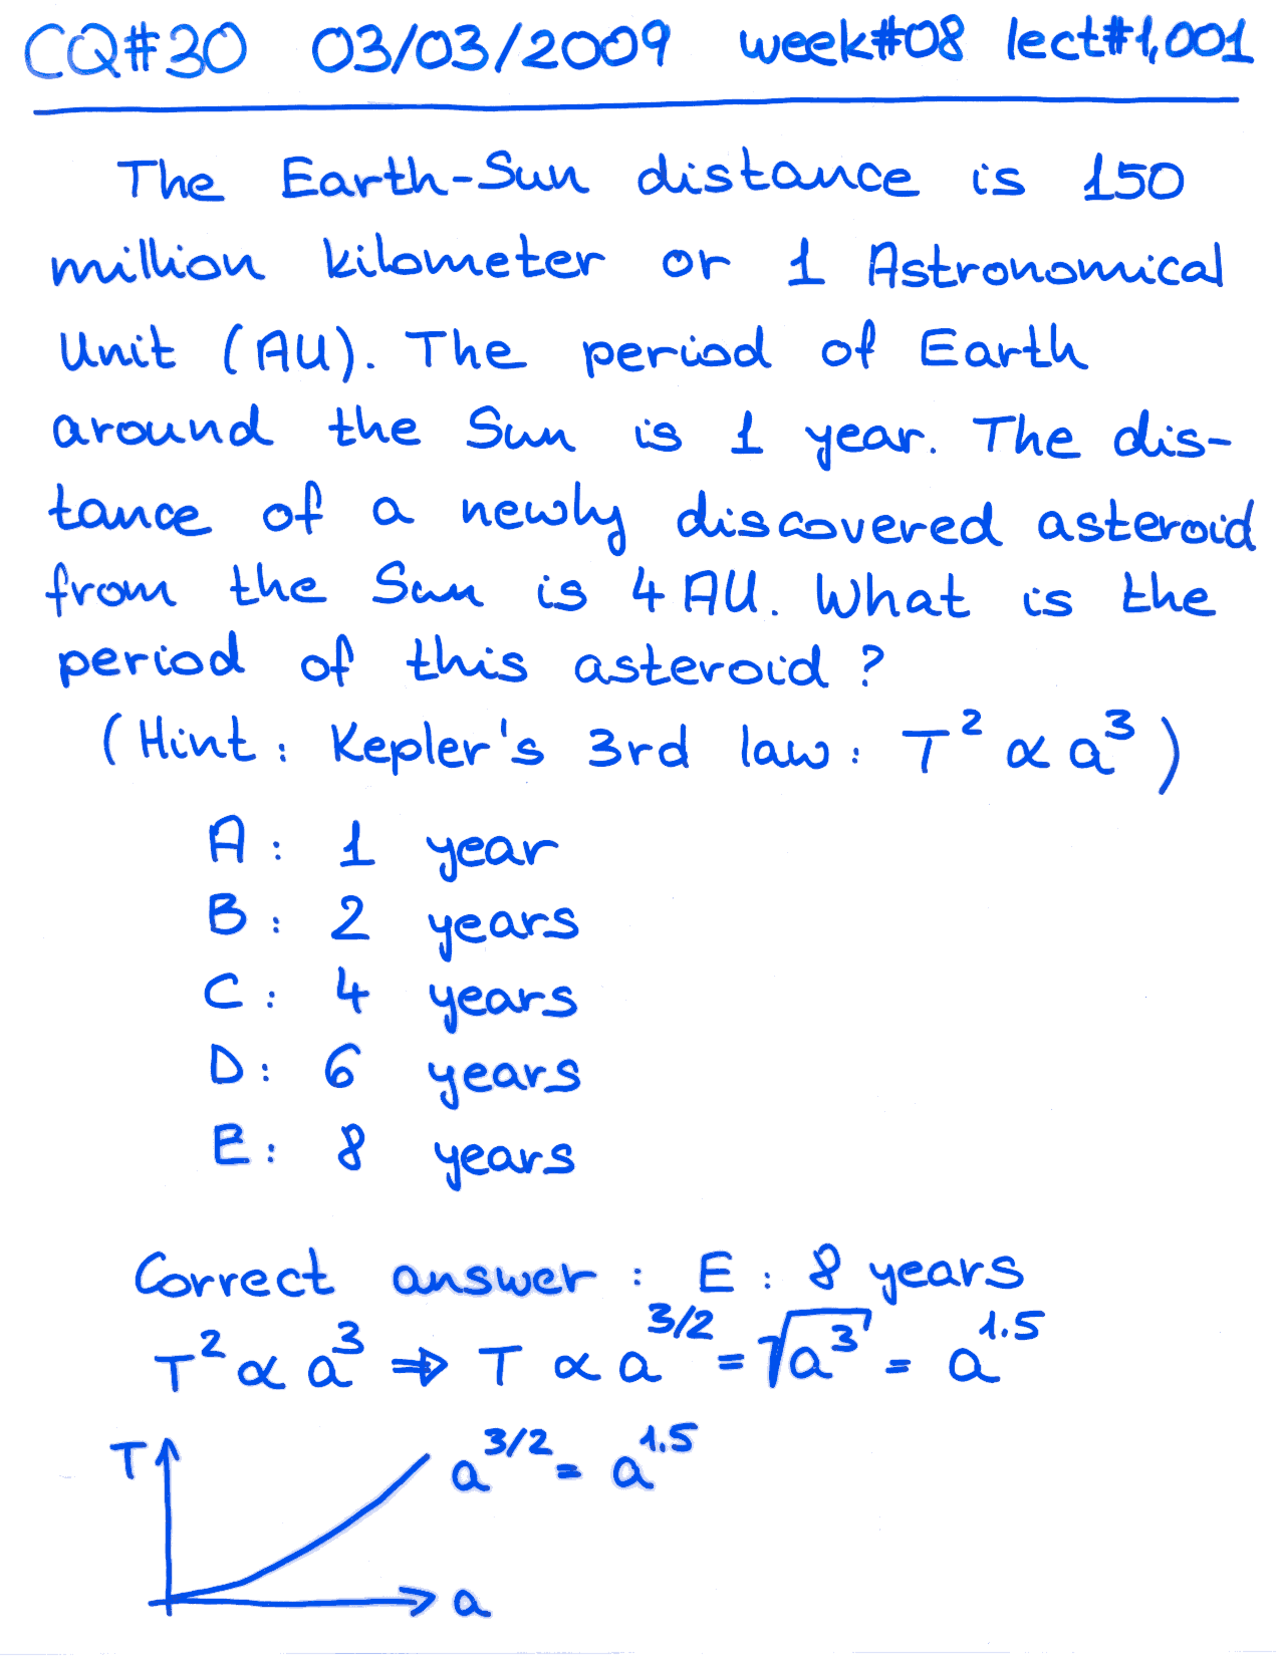 CQ#30 03/03/2009 week#08 lect#1,001
The Earth-Sun distance is 150
million kilometer or 1 Astronomical
Unit (AU). The period of Earth
around the Sun is 1 year. The dis-
tance of a newly discovered asteroid
from the Sun is 4 AU. What is the
period of this asteroid?
(Hint: Kepler's 3rd law: T² ∝ a³)
A: 1 year
B: 2 years
C: 4 years
D: 6 years
E: 8 years
Correct answer: E: 8 years
T² ∝ a³ ⇒ T ∝ a^3/2 = √a³ = a^1.5
T
a^3/2 = a^1.5
a